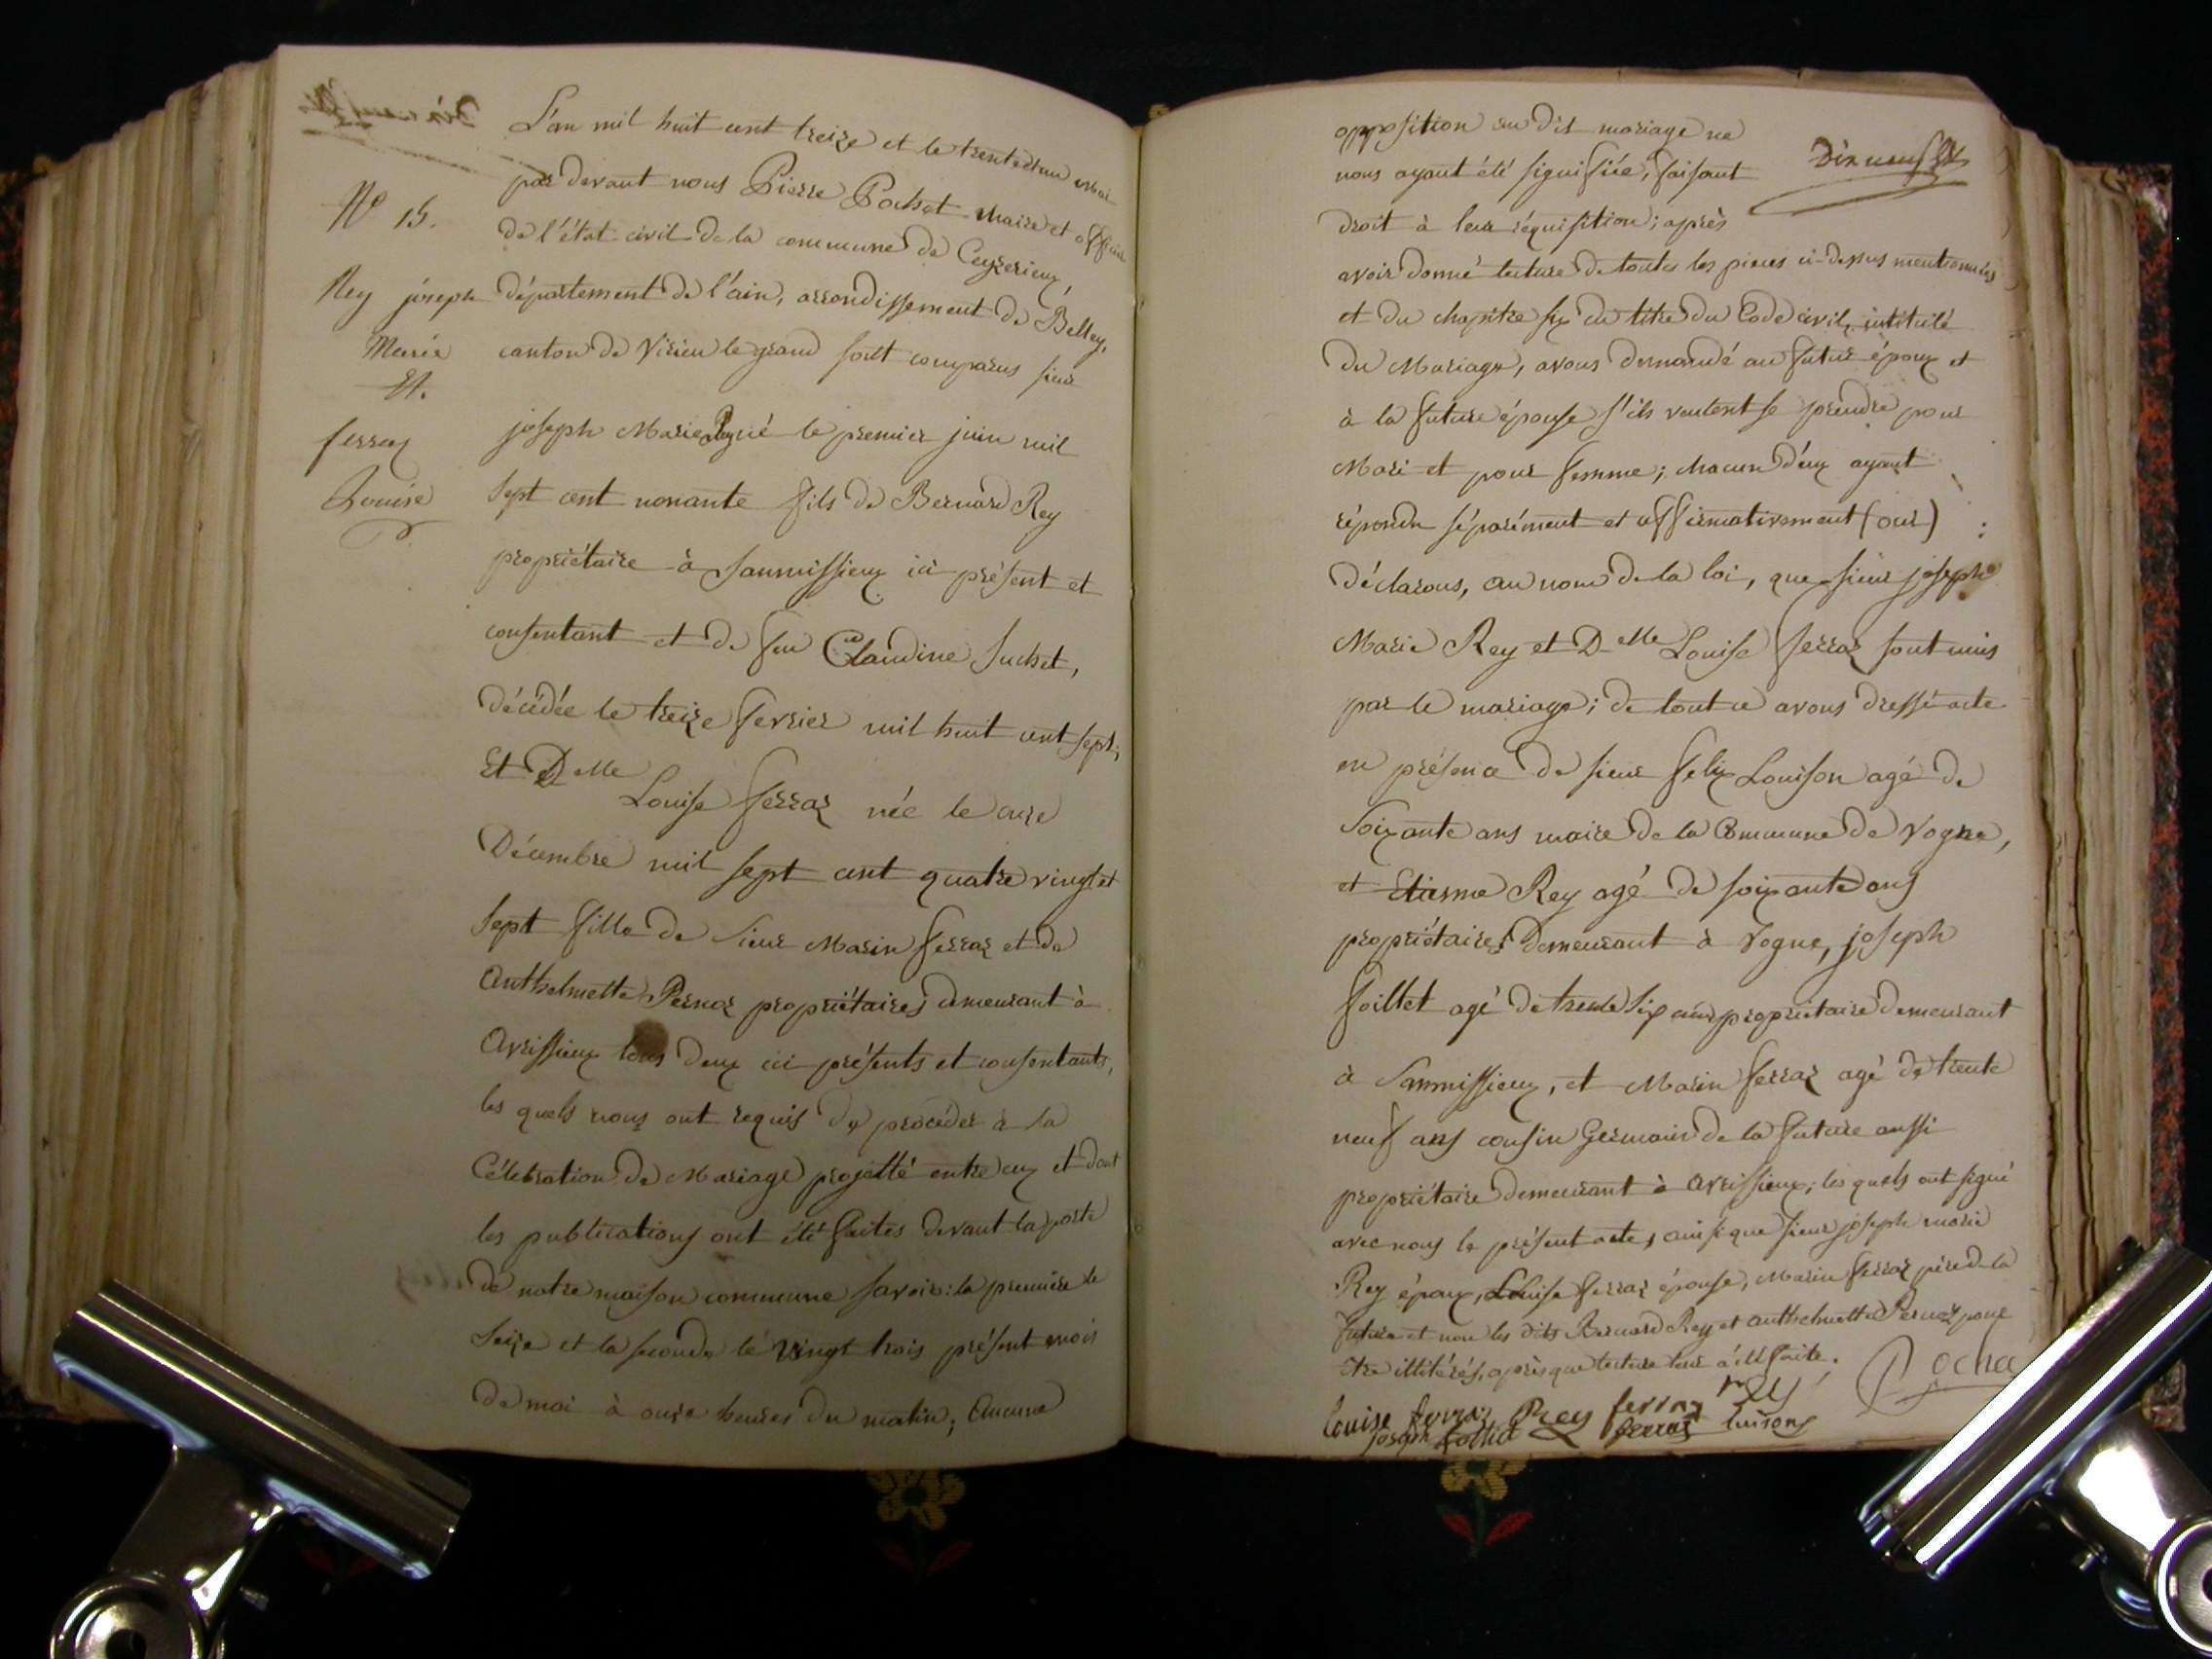 L'an mil huit cent treize et le trente et un mai
par devant nous Pierre Pochet Maire et officier
de l'état civil de la commune de Ceyzerieux,
N° 15.
Rey joseph
Marie
Et.
ferraz
Louise
département de l'ain, arrondissement de Belley,
canton de Virieu le grand sont comparus sieur
joseph Marie Rey né le premier juin mil
sept cent nonante fils de Bernard Rey
propriétaire à Sanmissieux ici présent et
consentant et de feu Claudine Suchet,
décédée le treize fevrier mil huit cent sept;
Et Delle Louise ferraz née le onze
Décembre mil sept cent quatre vingt et
sept fille de sieur Marin ferraz et de
Anthelmette Pernaz propriétaires demeurant à
Avrissieux tous deux ici présents et consentants,
les quels nous ont requis de procéder à la
Célébration de Mariage projetté entre eux et dont
les publications ont été faites devant la porte
de notre maison commune savoir: la premiere le
seize et la seconde le vingt trois présent mois
de mai à onze heures du matin; Aucune
Dix neuf
opposition au dit mariage ne
nous ayant été signifiée; faisant
droit à leur réquisition; après
avoir donné lecture de toutes les pieces ci-dessus mentionnées
et du chapitre six du titre du Code civil, intitulé
du Mariage, avons demandé au futur époux et
à la future épouse s'ils veulent se prendre pour
Mari et pour femme; chacun d'eux ayant
répondu séparément et affirmativement (oui)
déclarons, au nom de la loi, que sieur joseph
Marie Rey et Delle Louise ferraz sont unis
par le mariage; de tout ce avons dressé acte
en présence de sieur felix Louison agé de
soixante ans maire de la Commune de Vogne,
et Etienne Rey agé de soixante ans
propriétaires demeurant à Vogne, joseph
foillet agé de trente six ans propriétaire demeurant
à Sanmissieux, et Marin ferraz agé de trente
neuf ans cousin Germain de la future aussi
propriétaire demeurant à Avrissieux; les quels ont signé
avec nous le présent acte, ainsi que sieur joseph marie
Rey époux, Louise ferraz épouse, Marin ferraz père de la
future et non les dits Bernard Rey et Anthelmette Pernaz pour
être illitérés, après que lecture leur a été faite.
Louise ferraz Rey ferraz rey Pochet
joseph follict ferraz luison